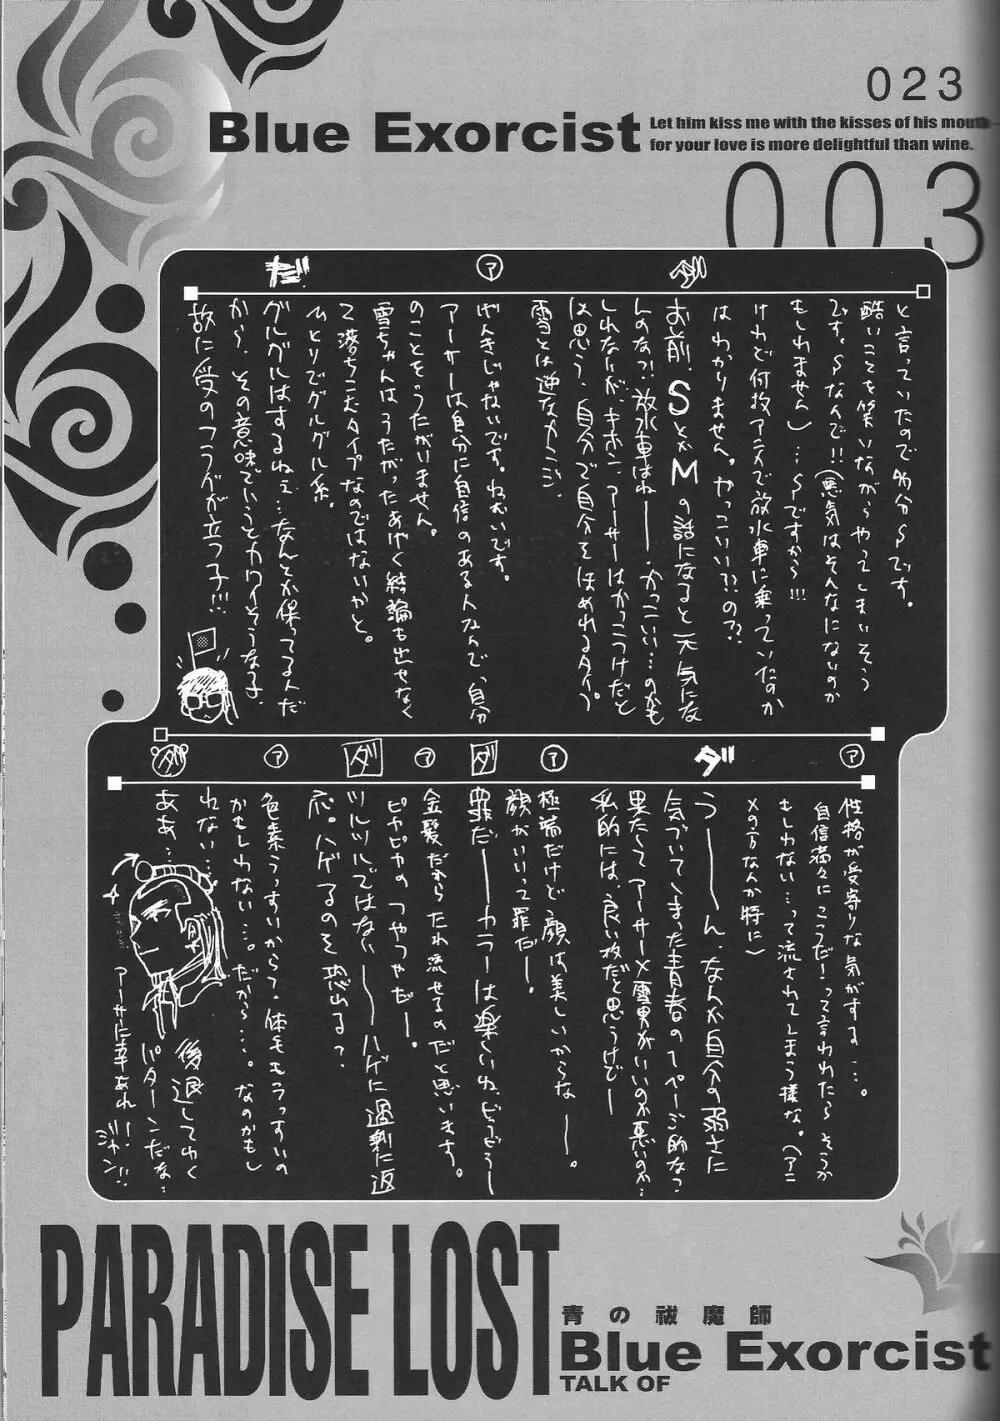 023
Blue Exorcist
Let him kiss me with the kisses of his mouth
for your love is more delightful than wine.
003
と言っていたので多分Sです。
酷いことを笑いながらやってしまいそう
です。Sなんで!!(悪気はそんなにないのか
もしれません)…Sですから!!!
けれど何故アニメで放水車に乗っていたのか
はわかりません。かっこいい??の??
ダ
お前、SとかMの話になると元気にな
んのな?!放水車はねー、かっこいい…のかも
しれないが、キホン、アーサーはかっこうけだと
は思う、自分で自分をほめれるタイプ。
雪とは逆なカンジ。
ア
げんきじゃないです。ねむいです。
アーサーは自分に自信のある人なんで、自分
のことをうたがいません。
雪ちゃんは、うたがったあげく結論も出せなく
て落ちこむタイプなのではないかと。
ひとりでグルグル系。
だ
グルグルはするねぇ…なんとか保ってるんだ
から、その意味でいうとカワイそうな子、
故に受のフラグが立つ子!!!
ア
性格が受寄りな気がする…。
自信満々に「こうだ!」って言われたらそうか
もしれない…って流されてしまう様な。(アニ
メの方なんか特に)
ダ
うーーん、なんか自分の弱さに
気づいてしまった青春の1ページ的な?
果たしてアーサー×雪男がいいのか悪いのか…
私的には、良い攻だと思うけどー
ア
極端だけど顔は美しいからなー。
顔がいいって罪だー。
ダ
罪だーーカラーは楽しいね、どうどうー
ア
金髪だから、たれ流せるのだと思います。
ピカピカのつやつやだー。
ダ
ツルツルではないーーハゲに過剰に返
応。ハゲるのを恐れる?
ア
色素うっすいからって、体毛もうっすいの
かもしれない…。だから…。なのかもし
れない…
ダ
ああ…
後退してゆく
パターンだな…
アーサーに幸あれ!
ジャン!!
PARADISE LOST
青の祓魔師
Blue Exorcist
TALK OF